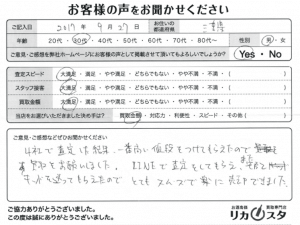 お客様の声をお聞かせください
ご記入日 2017年 9月27日 お住いの都道府県
年齢 20代・30代・40代・50代・60代・70代・80代〜 性別 男・女
ご意見・ご感想を弊社ホームページにお客様の声として掲載させて頂いてもよろしいでしょうか? Yes・No
査定スピード 大満足・満足・やや満足・どちらでもない・やや不満・不満・( )
スタッフ接客 大満足・満足・やや満足・どちらでもない・やや不満・不満・( )
買取金額 大満足・満足・やや満足・どちらでもない・やや不満・不満・( )
当店をお選びいただきました決め手は? 買取金額・対応力・利便性・スピード・その他( )
ご意見・ご感想などぜひお聞かせください
4社で査定した結果、一番高い値段をつけてもらえたので
買取をお願いしました。LINEで査定をしてもらえ、
キットを送ってもらえたので とてもスムーズで楽に売却できました。
ご協力ありがとうございました。
この度は誠にありがとうございました。
お酒買取専門店
リカスタ